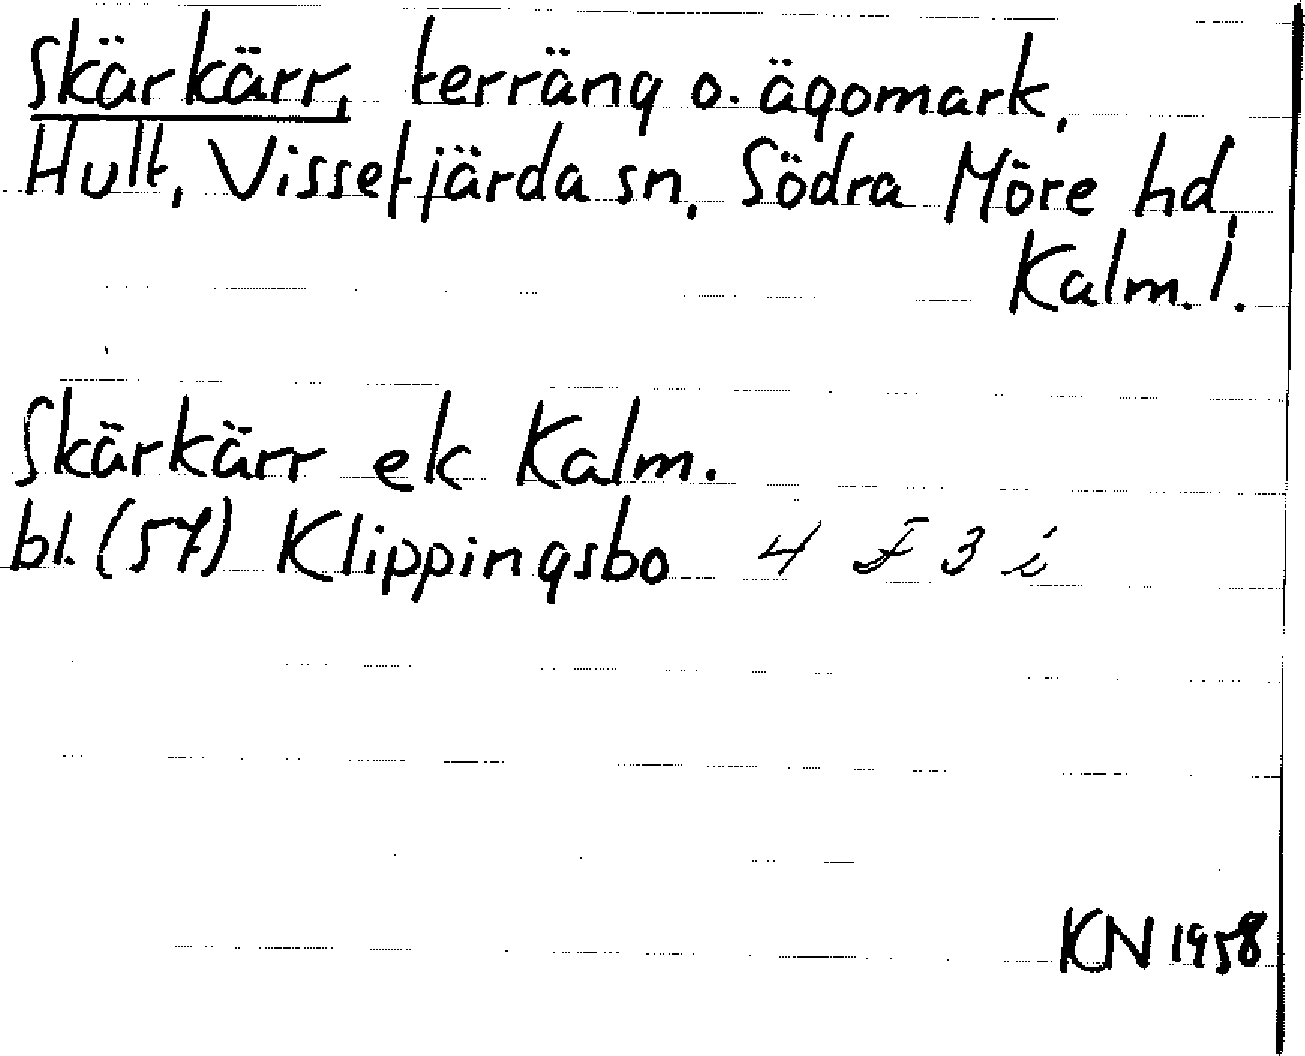 Skärkärr, terräng o. ägomark,
Hult, Vissefjärda sn, Södra Möre hd,
Kalm. l.
Skärkärr ek Kalm.
bl. (57) Klippingsbo 4 F 3 i
KN 1958